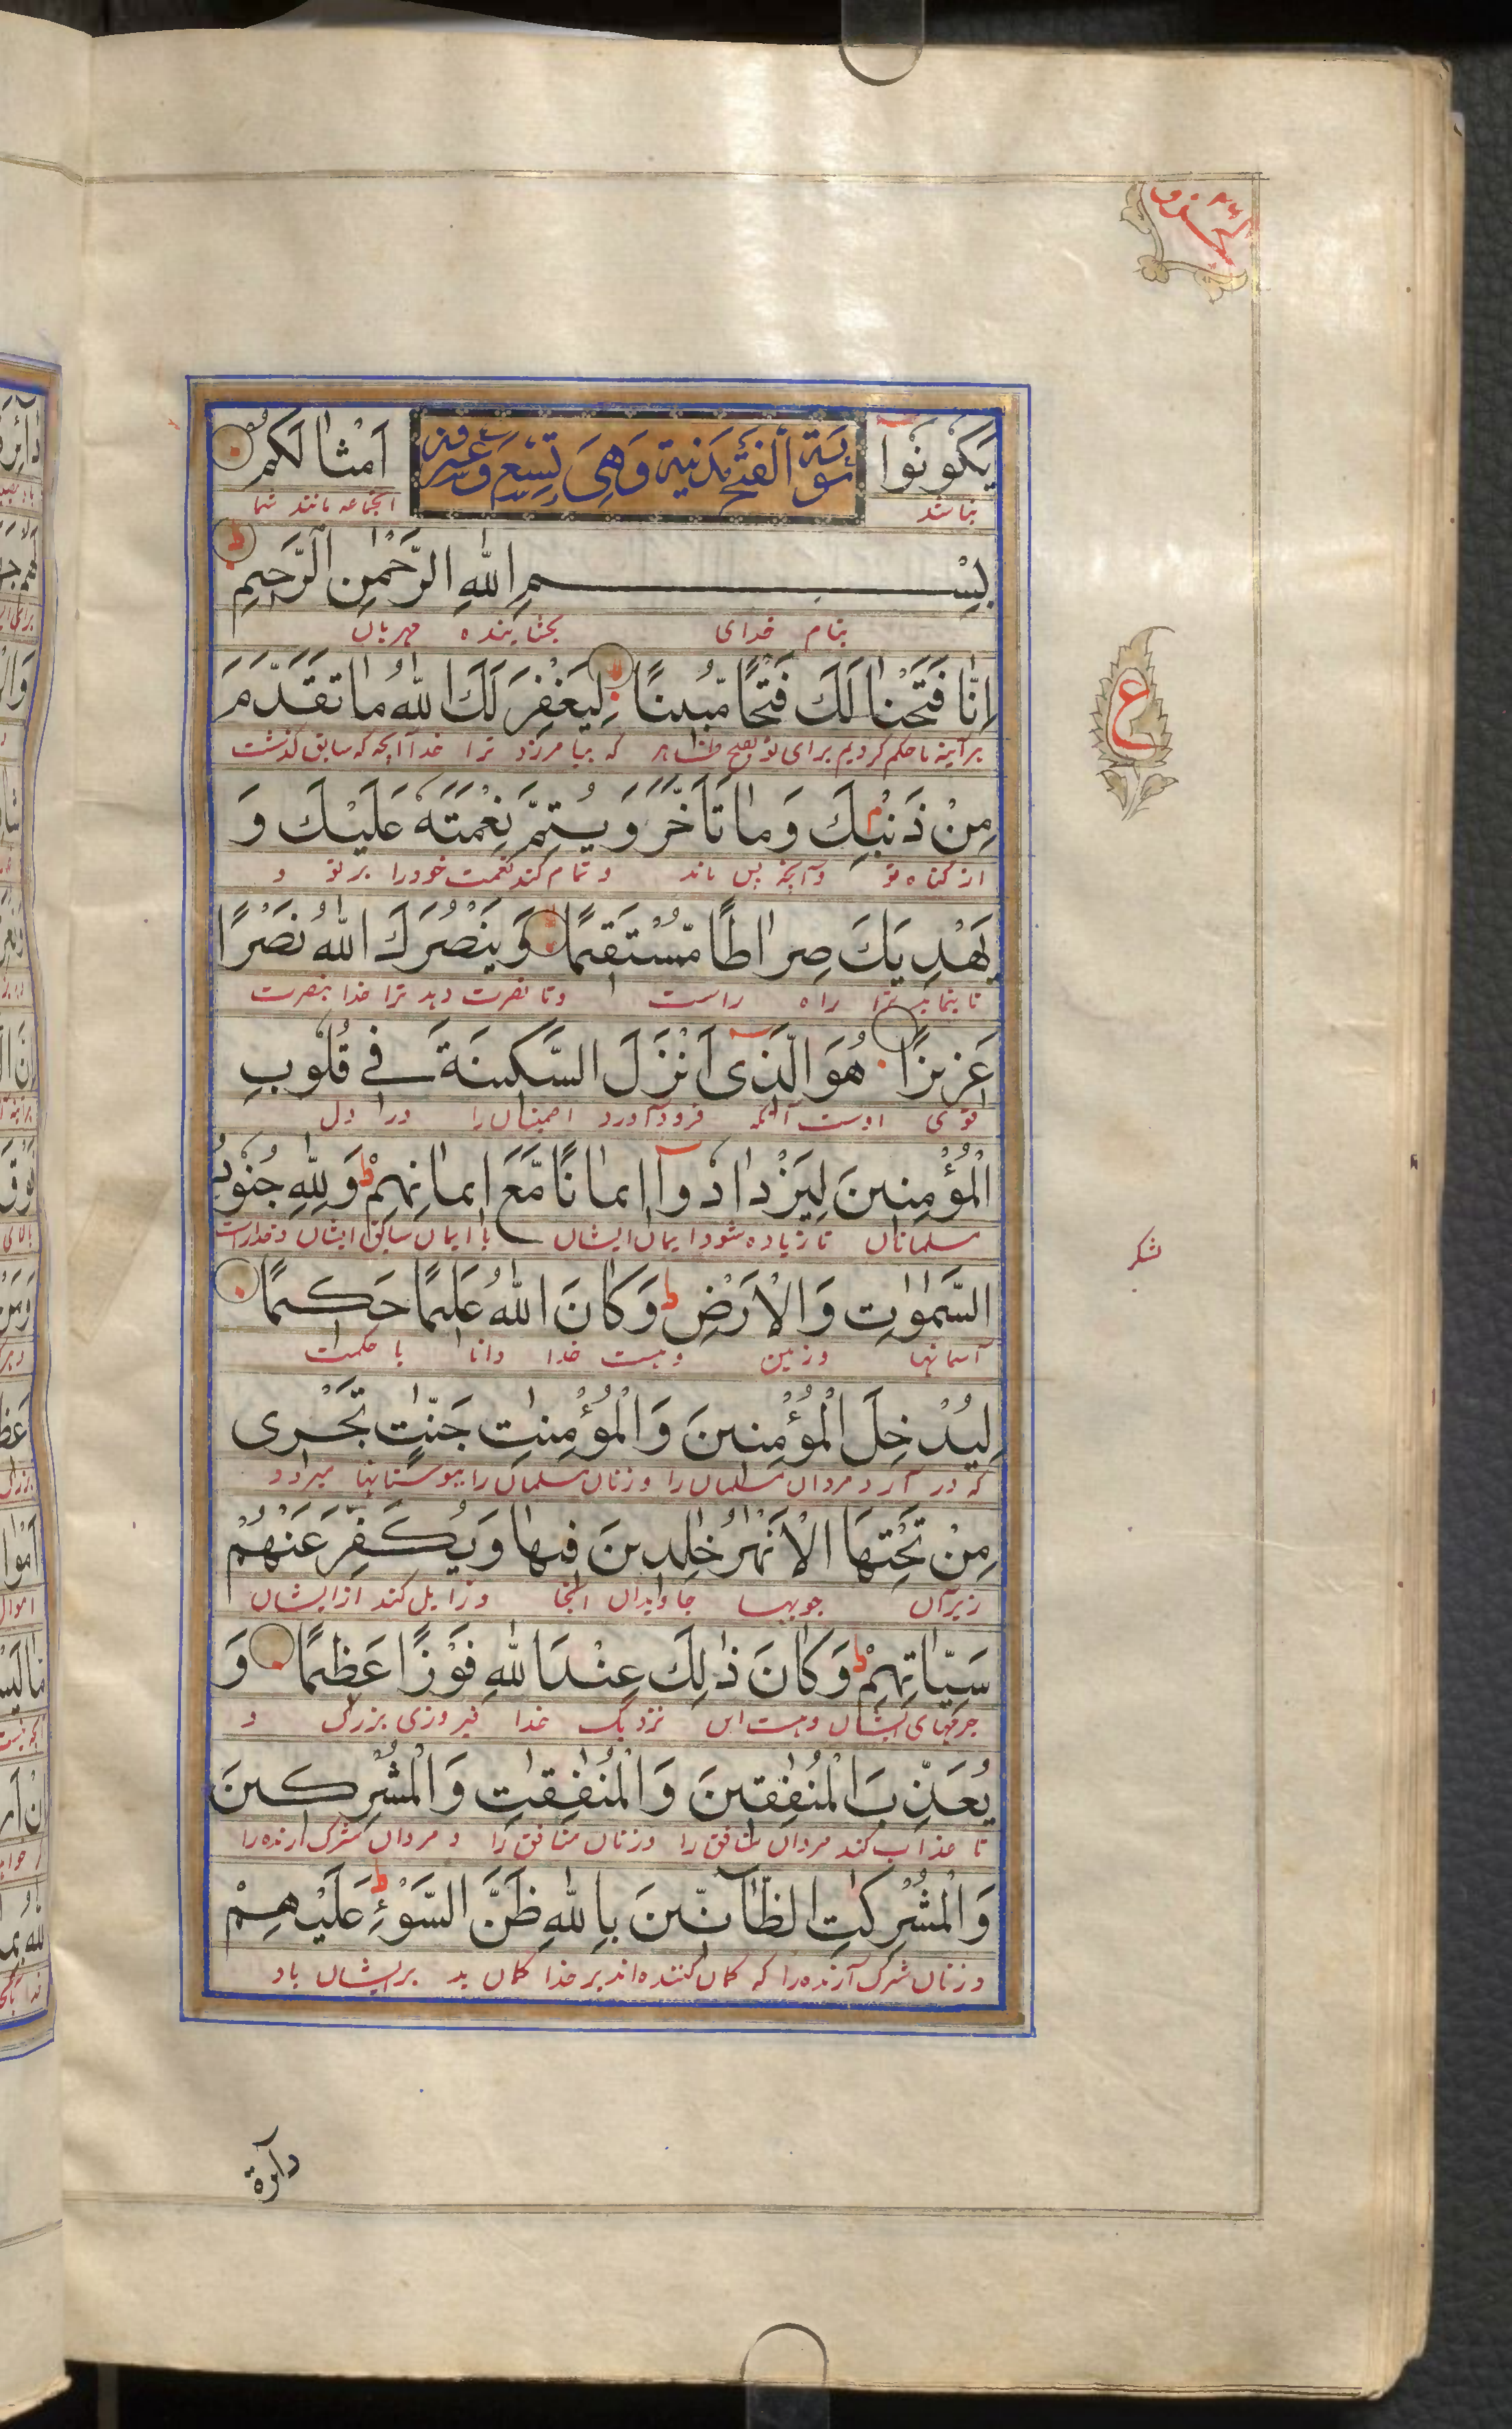 يَكُونُوا سُورَةُ الْفَتْحِ مَدَنِيَّة وَهِيَ تِسْعٌ وَعِشْرُونَ اَمْثَالَكُمْ
نباشند انجماعه مانند شما
بِسْمِ اللّٰهِ الرَّحْمٰنِ الرَّحِيمِ ط
بنام خدای بخشاینده مهربان
اِنَّا فَتَحْنَا لَكَ فَتْحًا مُّبِينًا لِيَغْفِرَ لَكَ اللّٰهُ مَا تَقَدَّمَ
هرآینه ما حکم کردیم برای تو بفتح ظاهر که بیامرزد ترا خدا آنچه که سابق گذشت
مِنْ ذَنْبِكَ وَمَا تَاَخَّرَ وَيُتِمَّ نِعْمَتَهٗ عَلَيْكَ وَ
از گناه تو وآنچه پس ماند و تمام کند نعمت خود را بر تو و
يَهْدِيَكَ صِرَاطًا مُّسْتَقِيمًا وَيَنْصُرَكَ اللّٰهُ نَصْرًا
تا بنماید ترا راه راست وتا نصرت دهد ترا خدا بنصرت
عَزِيزًا هُوَ الَّذِي اَنْزَلَ السَّكِينَةَ فِي قُلُوبِ
قوی اوست آنکه فرود آورد اطمینان را در دل
الْمُؤْمِنِينَ لِيَزْدَادُوآ اِيمَانًا مَّعَ اِيمَانِهِمْ ط وَلِلّٰهِ جُنُودُ
مسلمانان تا زیاده شود ایمان ایشان با ایمان سابق ایشان و خداراست
السَّمٰوٰتِ وَالْاَرْضِ ط وَكَانَ اللّٰهُ عَلِيمًا حَكِيمًا
آسمانها وزمین وهست خدا دانا با حکمت
شکر
لِيُدْخِلَ الْمُؤْمِنِينَ وَالْمُؤْمِنٰتِ جَنّٰتٍ تَجْرِي
که در آرد مردان مسلمان را وزنان مسلمان را ببوستانها میرود
مِنْ تَحْتِهَا الْاَنْهٰرُ خٰلِدِينَ فِيهَا وَيُكَفِّرَ عَنْهُمْ
زیر آن جویها جاویدان آنجا وزایل کند از ایشان
سَيِّاٰتِهِمْ ط وَكَانَ ذٰلِكَ عِنْدَ اللّٰهِ فَوْزًا عَظِيمًا وَ
جرمهای ایشان وهست این نزدیک خدا فیروزی بزرگ و
يُعَذِّبَ الْمُنٰفِقِينَ وَالْمُنٰفِقٰتِ وَالْمُشْرِكِينَ
تا عذاب کند مردان منافق را وزنان منافق را و مردان شرک آرنده را
وَالْمُشْرِكٰتِ الظَّآنِّينَ بِاللّٰهِ ظَنَّ السَّوْءِ ط عَلَيْهِمْ
وزنان شرک آرنده را که گمان کننده اند بر خدا گمان بد بر ایشان باد
دآئرة
ع